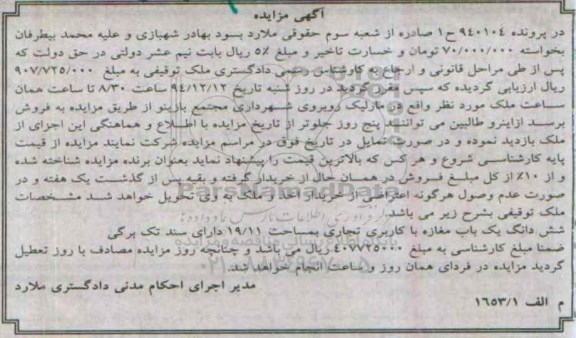 آگهی مزایده
در پرونده ۹۴۰۱۰۴ ح۱ صادره از شعبه سوم حقوقی ملارد بسود بهادر شهبازی و علیه محمد بیطرفان
بخواسته ۷۰/۰۰۰/۰۰۰ تومان و خسارت تاخیر و مبلغ ۵٪ ریال بابت نیم عشر دولتی در حق دولت که
پس از طی مراحل قانونی و ارجاع به کارشناس رسمی دادگستری ملک توقیفی به مبلغ ۹۰۷/۷۲۵/۰۰۰
ریال ارزیابی گردیده که سپس مقرر گردید در روز شنبه تاریخ ۹۴/۱۲/۱۲ ساعت ۸/۳۰ تا ساعت همان
ساعت ملک مورد نظر واقع در مارلیک روبروی شهرداری مجتمع بازینو از طریق مزایده به فروش
برسد ازاینرو طالبین می توانند پنج روز جلوتر از تاریخ مزایده با اطلاع و هماهنگی این اجرای از
ملک بازدید نموده و در صورت تمایل در تاریخ فوق در مراسم مزایده شرکت نمایند مزایده از قیمت
پایه کارشناسی شروع و هر کس که بالاترین قیمت را پیشنهاد نماید بعنوان برنده مزایده شناخته شده
و از ۱۰٪ از کل مبلغ فروش در همان حال از خریدار گرفته و بقیه پس از گذشت یک هفته و در
صورت عدم وصول هرگونه اعتراضی از خریدار اخذ و ملک به وی تحویل خواهد شد مشخصات
ملک توقیفی بشرح زیر می باشد
شش دانگ یک باب مغازه با کاربری تجاری بمساحت ۱۹/۱۱ دارای سند تک برگی
ضمنا مبلغ کارشناسی به مبلغ ریال می باشد و چنانچه روز مزایده مصادف با روز تعطیل
گردید مزایده در فردای همان روز و ساعت انجام خواهد شد.
مدیر اجرای احکام مدنی دادگستری ملارد
م الف ۱۶۵۳/۱
ParsNamadData